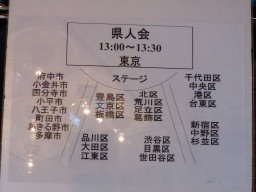 県人会
13:00～13:30
東京
ステージ
府中市
小金井市
国分寺市
小平市
八王子市
町田市
あきる野市
多摩市
豊島区
文京区
板橋区
北区
荒川区
足立区
葛飾区
千代田区
中央区
港区
台東区
新宿区
中野区
杉並区
品川区
大田区
江東区
渋谷区
目黒区
世田谷区